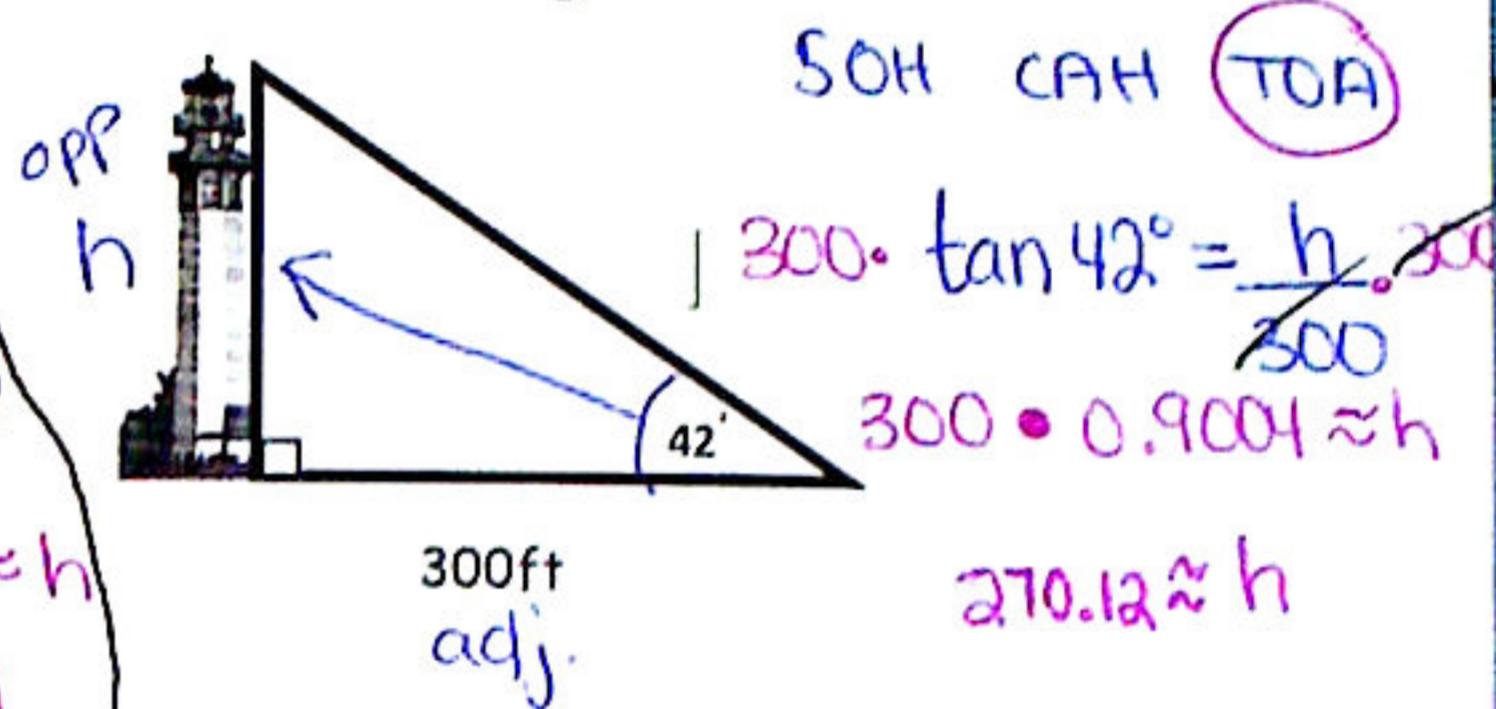 SOH CAH TOA
opp
h
300· tan 42° = h/300 · 300
42°
300 • 0.9004 ≈ h
≈ h
300ft
adj.
270.12 ≈ h